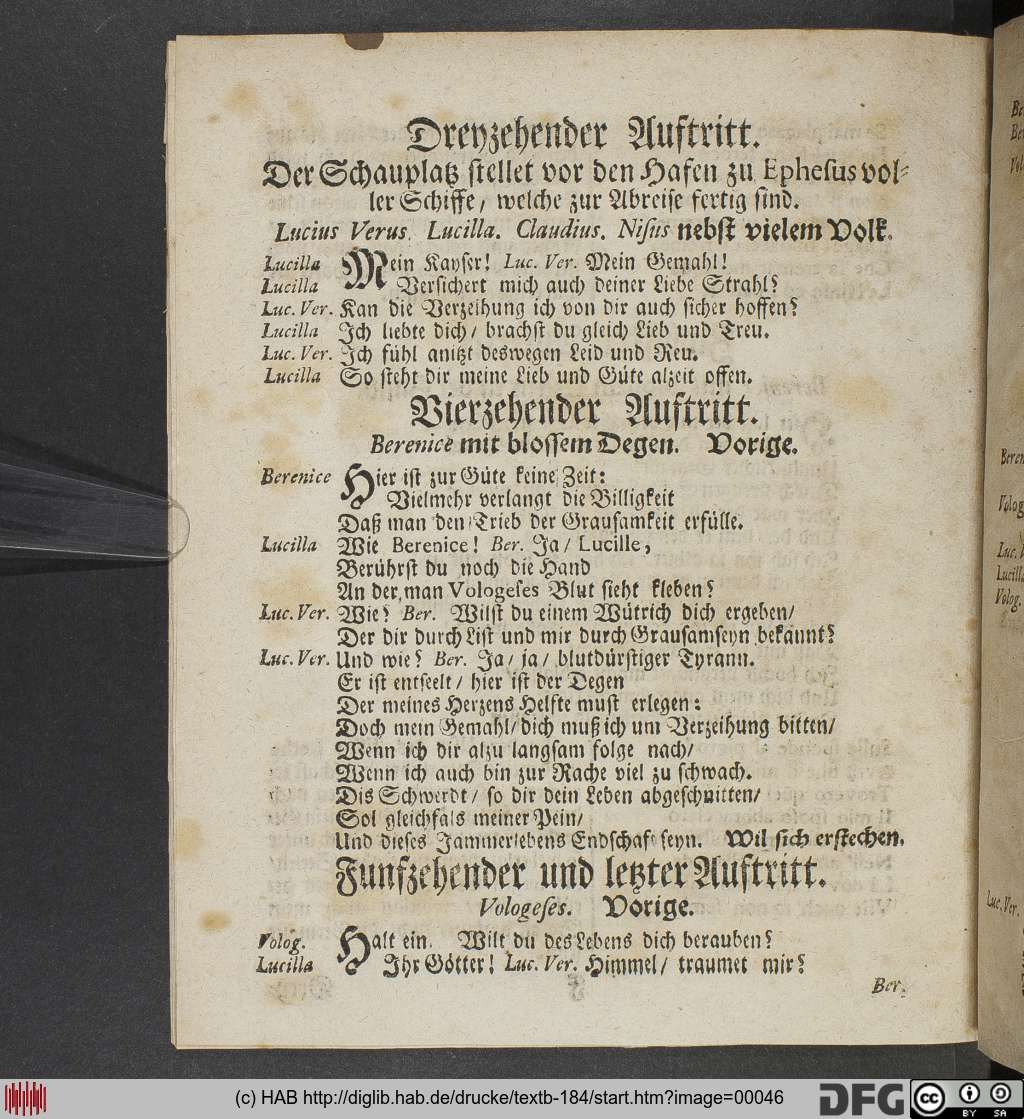 Dreyzehender Auftritt.
Der Schauplatz stellet vor den Hafen zu Ephesus vol-
ler Schiffe / welche zur Abreise fertig sind.
Lucius Verus. Lucilla. Claudius. Nisus nebst vielem Volk.
Lucilla Mein Kayser! Luc. Ver. Mein Gemahl!
Lucilla Versichert mich auch deiner Liebe Strahl?
Luc. Ver. Kan die Verzeihung ich von dir auch sicher hoffen?
Lucilla Ich liebte dich / brachst du gleich Lieb und Treu.
Luc. Ver. Ich fühl anitzt deswegen Leid und Reu.
Lucilla So steht dir meine Lieb und Güte alzeit offen.
Vierzehender Auftritt.
Berenice mit blossem Degen. Vorige.
Berenice Hier ist zur Güte keine Zeit:
Vielmehr verlangt die Billigkeit
Daß man den Trieb der Grausamkeit erfülle.
Lucilla Wie Berenice! Ber. Ja / Lucille,
Berührst du noch die Hand
An der man Vologeses Blut sieht kleben?
Luc. Ver. Wie? Ber. Wilst du einem Wütrich dich ergeben /
Der dir durch List und mir durch Grausamseyn bekannt?
Luc. Ver. Und wie? Ber. Ja / ja / blutdürstiger Tyrann.
Er ist entseelt / hier ist der Degen
Der meines Herzens Helfte must erlegen:
Doch mein Gemahl / dich muß ich um Verzeihung bitten /
Wenn ich dir alzu langsam folge nach /
Wenn ich auch bin zur Rache viel zu schwach.
Dis Schwerdt / so dir dein Leben abgeschnitten /
Sol gleichfals meiner Pein /
Und dieses Jammerlebens Endschaft seyn. Wil sich erstechen.
Funfzehender und letzter Auftritt.
Vologeses. Vorige.
Volog. Halt ein. Wilt du des Lebens dich berauben?
Lucilla Ihr Götter! Luc. Ver. Himmel / traumet mir?
Ber.
(c) HAB http://diglib.hab.de/drucke/textb-184/start.htm?image=00046
DFG
cc BY SA